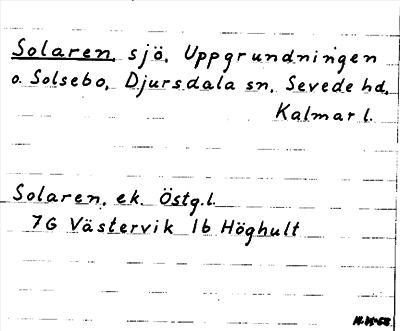 Solaren, sjö, Uppgrundningen
o. Solsebo, Djursdala sn, Sevede hd,
Kalmar l.
Solaren, ek. Östg.l.
7G Västervik 1b Höghult